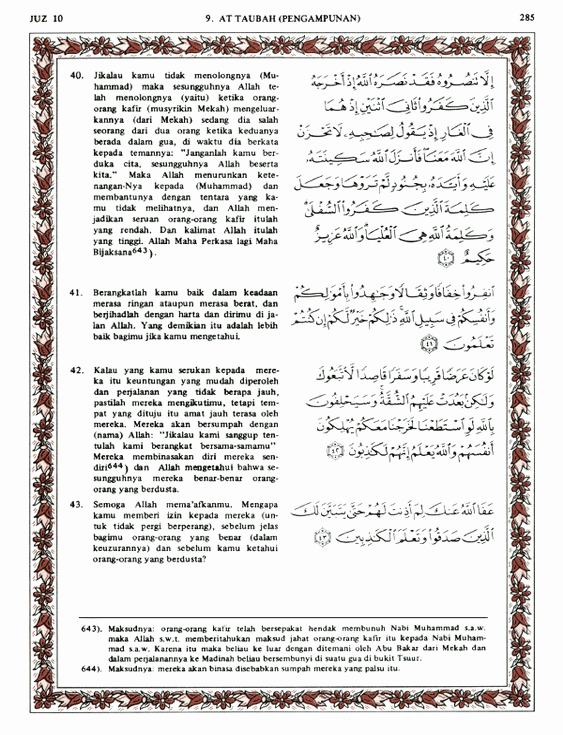 JUZ 10
9. AT TAUBAH (PENGAMPUNAN)
285
40. Jikalau kamu tidak menolongnya (Mu-
hammad) maka sesungguhnya Allah te-
lah menolongnya (yaitu) ketika orang-
orang kafir (musyrikin Mekah) mengeluar-
kannya (dari Mekah) sedang dia salah
seorang dari dua orang ketika keduanya
berada dalam gua, di waktu dia berkata
kepada temannya: "Janganlah kamu ber-
duka cita, sesungguhnya Allah beserta
kita." Maka Allah menurunkan kete-
nangan-Nya kepada (Muhammad) dan
membantunya dengan tentara yang ka-
mu tidak melihatnya, dan Allah men-
jadikan seruan orang-orang kafir itulah
yang rendah. Dan kalimat Allah itulah
yang tinggi. Allah Maha Perkasa lagi Maha
Bijaksana643).
إِلَّا تَنصُرُوهُ فَقَدْ نَصَرَهُ اللَّهُ إِذْ أَخْرَجَهُ
الَّذِينَ كَفَرُوا ثَانِيَ اثْنَيْنِ إِذْ هُمَا
فِي الْغَارِ إِذْ يَقُولُ لِصَاحِبِهِ لَا تَحْزَنْ
إِنَّ اللَّهَ مَعَنَا فَأَنزَلَ اللَّهُ سَكِينَتَهُ
عَلَيْهِ وَأَيَّدَهُ بِجُنُودٍ لَّمْ تَرَوْهَا وَجَعَلَ
كَلِمَةَ الَّذِينَ كَفَرُوا السُّفْلَىٰ
وَكَلِمَةُ اللَّهِ هِيَ الْعُلْيَا وَاللَّهُ عَزِيزٌ
حَكِيمٌ ٤٠
41. Berangkatlah kamu baik dalam keadaan
merasa ringan ataupun merasa berat, dan
berjihadlah dengan harta dan dirimu di ja-
lan Allah. Yang demikian itu adalah lebih
baik bagimu jika kamu mengetahui.
انفِرُوا خِفَافًا وَثِقَالًا وَجَاهِدُوا بِأَمْوَالِكُمْ
وَأَنفُسِكُمْ فِي سَبِيلِ اللَّهِ ذَٰلِكُمْ خَيْرٌ لَّكُمْ إِن كُنتُمْ
تَعْلَمُونَ ٤١
42. Kalau yang kamu serukan kepada mere-
ka itu keuntungan yang mudah diperoleh
dan perjalanan yang tidak berapa jauh,
pastilah mereka mengikutimu, tetapi tem-
pat yang dituju itu amat jauh terasa oleh
mereka. Mereka akan bersumpah dengan
(nama) Allah: "Jikalau kami sanggup ten-
tulah kami berangkat bersama-samamu"
Mereka membinasakan diri mereka sen-
diri644) dan Allah mengetahui bahwa se-
sungguhnya mereka benar-benar orang-
orang yang berdusta.
لَوْ كَانَ عَرَضًا قَرِيبًا وَسَفَرًا قَاصِدًا لَّاتَّبَعُوكَ
وَلَٰكِن بَعُدَتْ عَلَيْهِمُ الشُّقَّةُ وَسَيَحْلِفُونَ
بِاللَّهِ لَوِ اسْتَطَعْنَا لَخَرَجْنَا مَعَكُمْ يُهْلِكُونَ
أَنفُسَهُمْ وَاللَّهُ يَعْلَمُ إِنَّهُمْ لَكَاذِبُونَ ٤٢
43. Semoga Allah mema'afkanmu. Mengapa
kamu memberi izin kepada mereka (un-
tuk tidak pergi berperang), sebelum jelas
bagimu orang-orang yang benar (dalam
keuzurannya) dan sebelum kamu ketahui
orang-orang yang berdusta?
عَفَا اللَّهُ عَنكَ لِمَ أَذِنتَ لَهُمْ حَتَّىٰ يَتَبَيَّنَ لَكَ
الَّذِينَ صَدَقُوا وَتَعْلَمَ الْكَاذِبِينَ ٤٣
643). Maksudnya: orang-orang kafir telah bersepakat hendak membunuh Nabi Muhammad s.a.w.
maka Allah s.w.t. memberitahukan maksud jahat orang-orang kafir itu kepada Nabi Muham-
mad s.a.w. Karena itu maka beliau ke luar dengan ditemani oleh Abu Bakar dari Mekah dan
dalam perjalanannya ke Madinah beliau bersembunyi di suatu gua di bukit Tsuur.
644). Maksudnya: mereka akan binasa disebabkan sumpah mereka yang palsu itu.